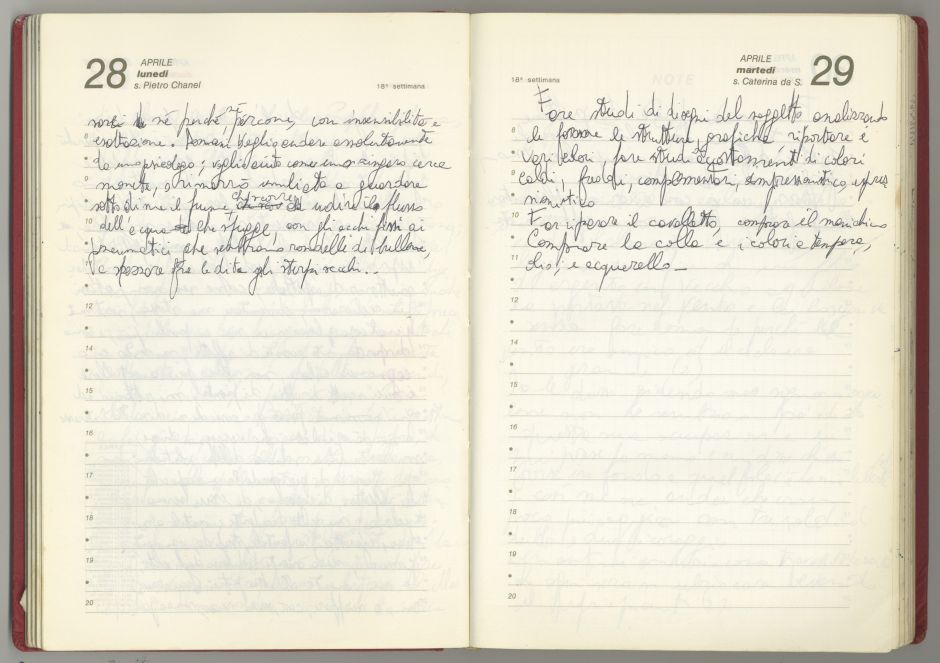 28 APRILE
lunedì
s. Pietro Chanel
18ª settimana
né perché, percome, con insensibilità e
esattazione. Domani voglio andare assolutamente
da uno psicologo; voglio aiuto come uno zingaro cerca
monete, o rimarrò umiliato a guardare
sotto di me il fiume udire il flusso
dell'acqua che sfugge, con gli occhi fissi ai
pneumatici che sembrano rondelle di bullone,
e spezzare fra le dita gli sterpi secchi...
8
9
10
11
12
14
15
16
17
18
19
20
APRILE
martedì
s. Caterina da S. 29
18ª settimana
Fare studi di disegni del soggetto analizzando
le forme le strutture grafiche riportare i
vari valori, fare studi accostamenti di colori
caldi, freddi, complementari, impressionistico espres
nonistico
Far riparare il cavalletto, comprare il manichino
Comprare la colla e i colori a tempera,
olio, e acquerello_
8
9
10
11
12
14
15
16
17
18
19
20